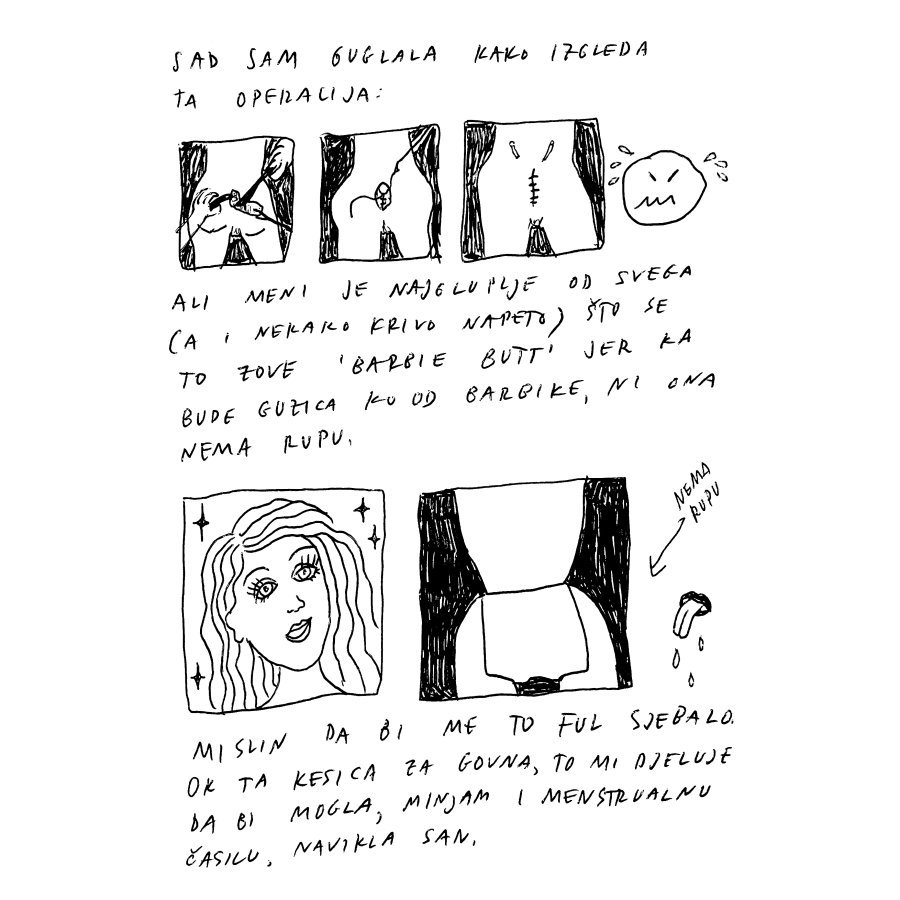 SAD SAM GUGLALA KAKO IZGLEDA
TA OPERACIJA:
ALI MENI JE NAJGLUPLJE OD SVEGA
(A I NEKAKO KRIVO NAPETO) ŠTO SE
TO ZOVE 'BARBIE BUTT' JER KA
BUDE GUZICA KO OD BARBIKE, NI ONA
NEMA RUPU.
NEMA
RUPU
MISLIN DA BI ME TO FUL SJEBALO.
OK TA KESICA ZA GOVNA, TO MI DJELUJE
DA BI MOGLA, MINJAM I MENSTRUALNU
ČASICU, NAVIKLA SAN.